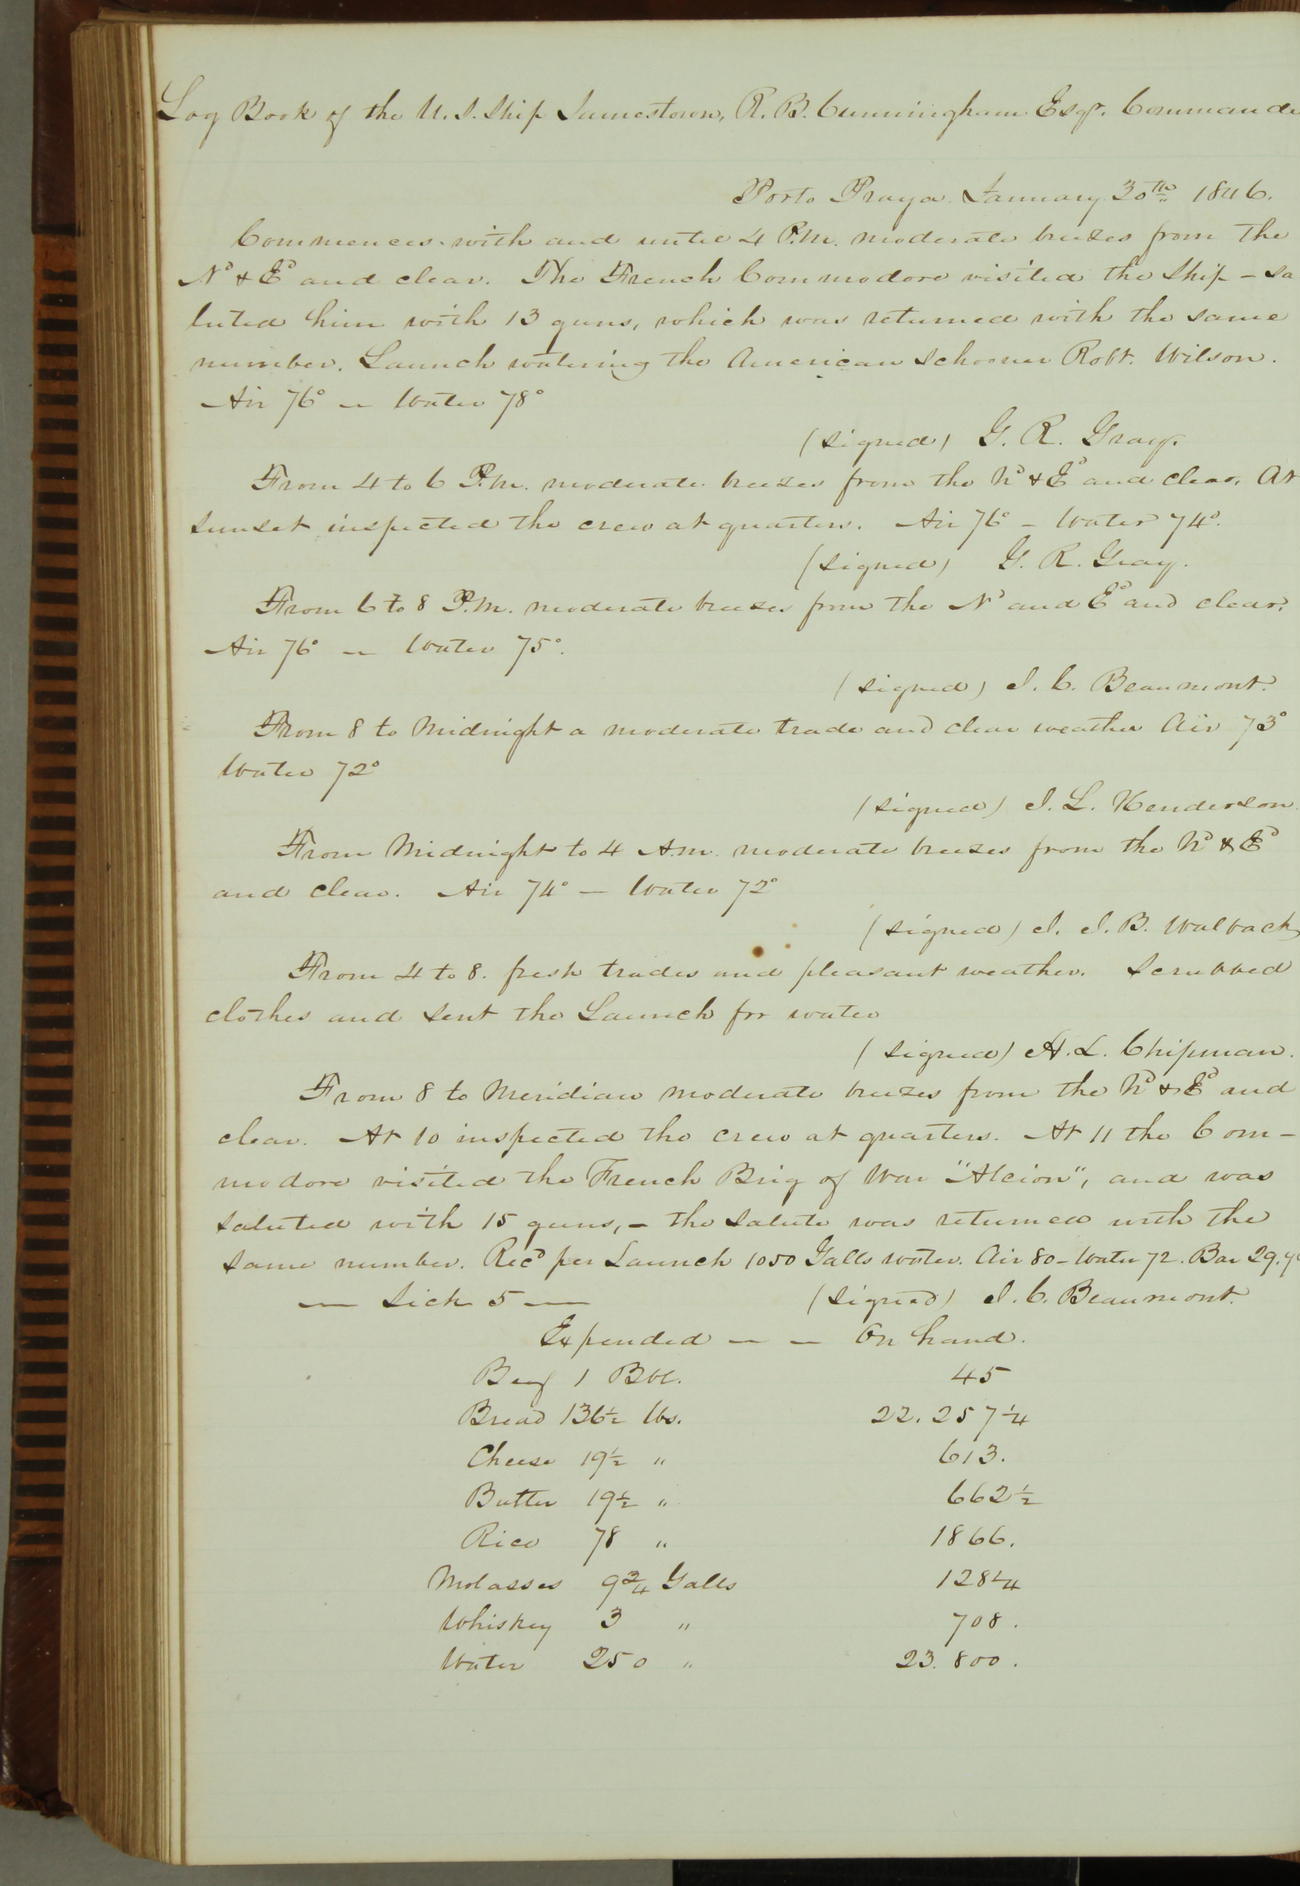 Log Book of the U. S. Ship Jamestown, R. B. Cunningham Esqr. Commande
Porto Praya January 30th 1846.
Commences with and until 4 P.M. moderate breezes from the
Nd & Ed and clear. The French Commodore visited the Ship – sa
luted him with 13 guns, which was returned with the same
number. Launch watering the American Schooner Robt. Wilson.
Air 76° – Water 78°
(signed) G. R. Gray.
From 4 to 6 P.M. moderate breezes from the Nd & Ed and clear. At
sunset inspected the crew at quarters. Air 76° – Water 74°.
(signed) G. R. Gray.
From 6 to 8 P.M. moderate breezes from the Nd and Ed and clear.
Air 76° – Water 75°.
(signed) J. C. Beaumont.
From 8 to Midnight a moderate trade and clear weather Air 73°
Water 72°
(signed) J. L. Henderson.
From Midnight to 4 A.M. moderate breezes from the Nd & Ed
and clear. Air 74° – Water 72°
(signed) J. J. B. Walbach
From 4 to 8. fresh trades and pleasant weather. Scrubbed
clothes and sent the Launch for water
(signed) A. L. Chipman.
From 8 to Meridian moderate breezes from the Nd & Ed and
clear. At 10 inspected the crew at quarters. At 11 the Com-
modore visited the French Brig of War "Alcion", and was
saluted with 15 guns, – the salute was returned with the
same number. Recd per Launch 1050 Galls water. Air 80 – Water 72. Bar 29.9
— Sick 5 — (signed) J. C. Beaumont.
Expended — — On hand.
Beef 1 Bbl. 45
Bread 136½ lbs. 22.257¼
Cheese 19½ " 613.
Butter 19½ " 662½
Rice 78 " 1866.
Molasses 9¾ Galls 128¼
Whiskey 3 " 708.
Water 250 " 23.800.